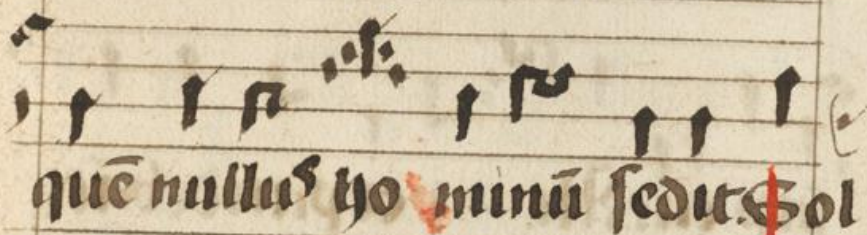 quē nullus ho minū sedit. Sol